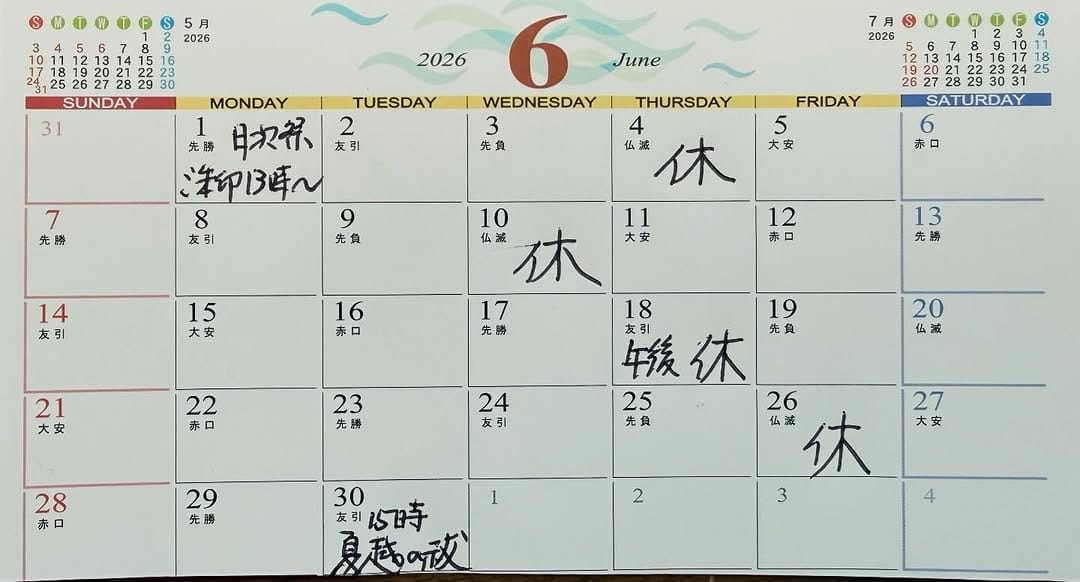 S M T W T F S 5月
2026
1 2
3 4 5 6 7 8 9
10 11 12 13 14 15 16
17 18 19 20 21 22 23
24 25 26 27 28 29 30
31
2026 6 June
S M T W T F S 7月
2026
1 2 3 4
5 6 7 8 9 10 11
12 13 14 15 16 17 18
19 20 21 22 23 24 25
26 27 28 29 30 31
SUNDAY MONDAY TUESDAY WEDNESDAY THURSDAY FRIDAY SATURDAY
31 1 2 3 4 5 6
先勝 友引 先負 仏滅 大安 赤口
月次祭
ご朱印13時〜
休
7 8 9 10 11 12 13
先勝 友引 先負 仏滅 大安 赤口 先勝
休
14 15 16 17 18 19 20
友引 大安 赤口 先勝 友引 先負 仏滅
午後 休
21 22 23 24 25 26 27
大安 赤口 先勝 友引 先負 仏滅 大安
休
28 29 30 1 2 3 4
赤口 先勝 友引
15時
夏越の祓